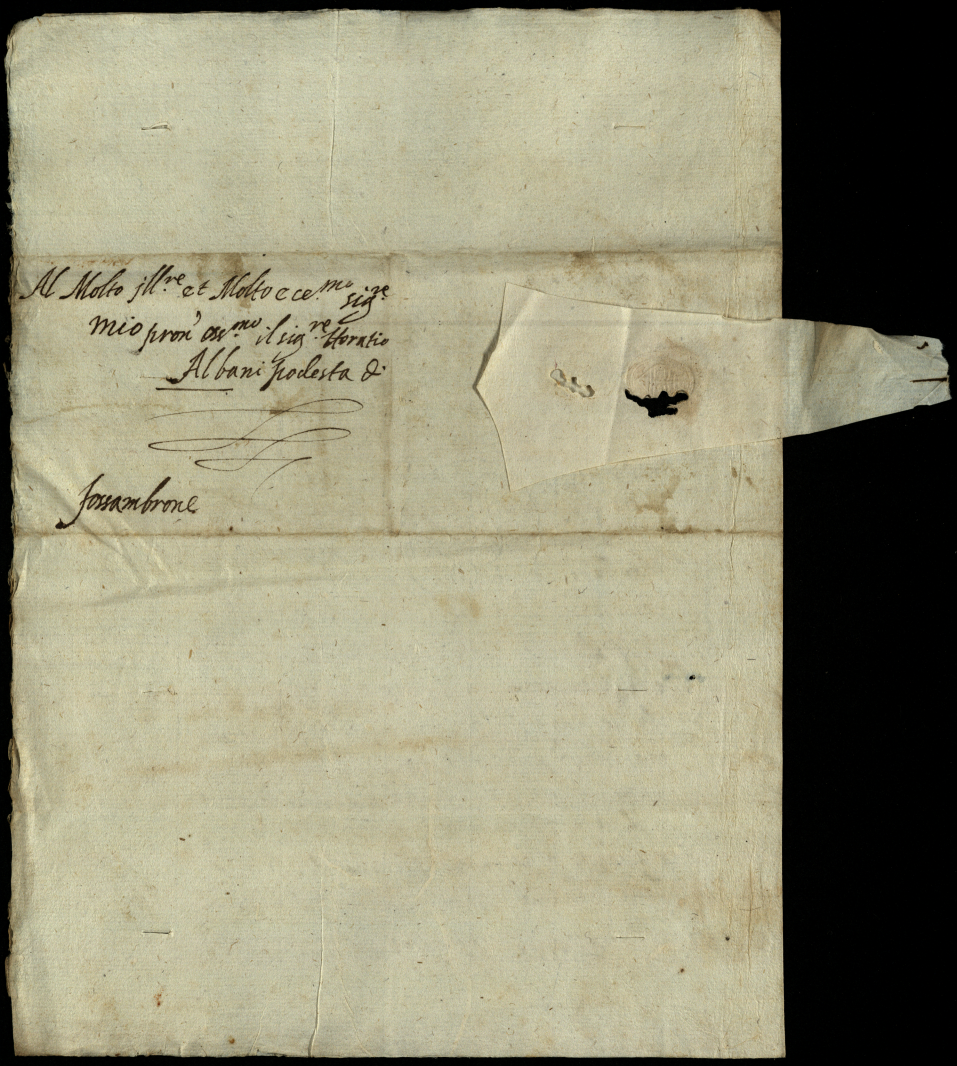 Al Molto jll.re et Molto ece.mo sig.re
mio pron' oss.mo il sig.re Horatio
Albani podesta d.
fossambrone